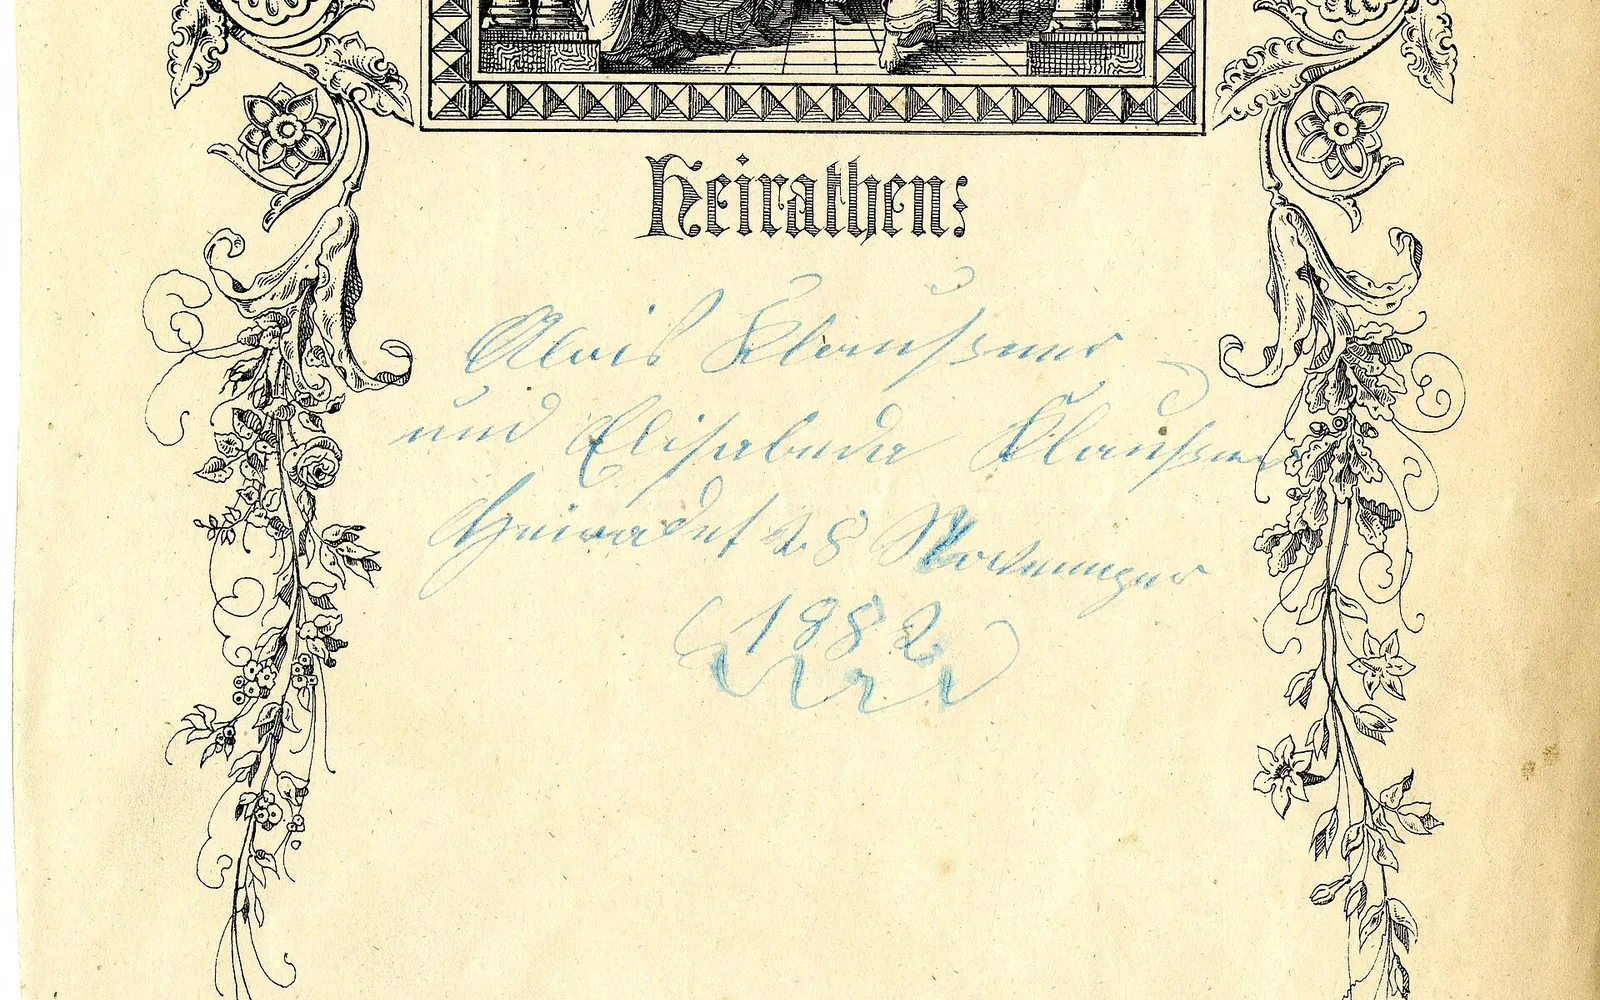 Heirathen:
Alois Klaußner
und Elisabeda Klaußner
Heiradet 28 November
1882